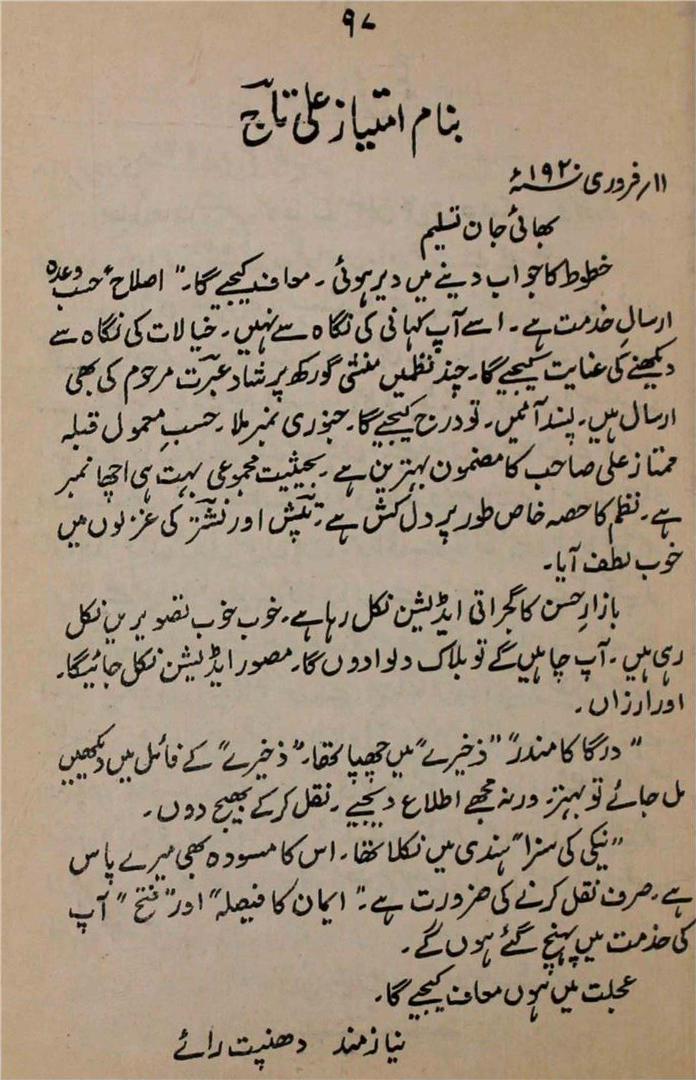 ۹۷
بنام امتیاز علی تاج
۱۱؍ فروری ۱۹۲۰ء
بھائی جان تسلیم
خطوط کا جواب دینے میں دیر ہوئی۔ معاف کیجیے گا۔ "اصلاح" حسب وعدہ
ارسالِ خدمت ہے۔ اسے آپ کہانی کی نگاہ سے نہیں۔ خیالات کی نگاہ سے
دیکھنے کی عنایت کیجیے گا۔ چند نظمیں منشی گورکھ پرشاد عبرت مرحوم کی بھی
ارسال ہیں۔ پسند آئیں۔ تو درج کیجیے گا۔ جنوری نمبر ملا۔ حسبِ معمول قبلہ
ممتاز علی صاحب کا مضمون بہترین ہے۔ بحیثیت مجموعی بہت ہی اچھا نمبر
ہے۔ نظم کا حصہ خاص طور پر دل کش ہے۔ تپش اور نشتر کی غزلوں میں
خوب لطف آیا۔
بازارِ حسن کا گجراتی ایڈیشن نکل رہا ہے۔ خوب خوب تصویریں نکل
رہی ہیں۔ آپ چاہیں گے تو بلاک دلوادوں گا۔ مصور ایڈیشن نکل جائیگا۔
اور ارزاں۔
"درگا کا مندر" "ذخیرے" میں چھپا تھا۔ "ذخیرے" کے فائل میں دیکھیں
مل جائے تو بہتر۔ ورنہ مجھے اطلاع دیجیے۔ نقل کرکے بھیج دوں۔
"نیکی کی سزا" ہندی میں نکلا تھا۔ اس کا مسودہ بھی میرے پاس
ہے۔ صرف نقل کرنے کی ضرورت ہے۔ "ایمان کا فیصلہ" اور "فتح" آپ
کی خدمت میں پہنچ گئے ہوں گے۔
عجلت میں ہوں معاف کیجیے گا۔
نیازمند دھنپت رائے